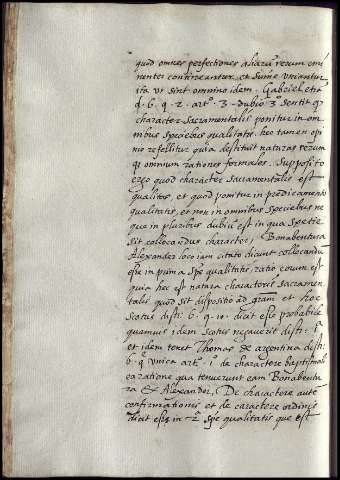 quod omnes perfectiones aliarū rerum emi
nenter contineantur et sūme vniantur
ita vt sint omnino idem. Gabriel etiā
d. 6. q. 2. artº. 3. dubio 3º sentit q̄
character sacramentalis ponitur in om
nibus speciebus qualitatis hec tamen opi
nio refellitur quia destruit naturas rerum
omnium rationes formales. Supposito
ergo quod character sacramentalis est
qualitas, et quod ponitur in predicamento
qualitatis, et non in omnibus speciebus ne
que in pluribus dubiū est in qua spetie
sit collocandus character, Bonabentura
Alexander loco iam citato dicunt collocandū
esse in prima spē qualitatis, ratio eorum est
quia hec est natura characteris sacramen
talis quod sit dispositio ad gram et hoc
scotus dist. 6. q. 10. dicit esse probabile
quamuis idem scotus negauerit dist.
et idem tenet Thomas de argentina dist.
6. q. vnica artº. de charactere baptismal
ea ratione qua tenuerunt eam Bonabentu
ra & Alexander, De charactere autē
confirmationis et de caractere ordinis
dicit esse in 2 spē qualitatis que est